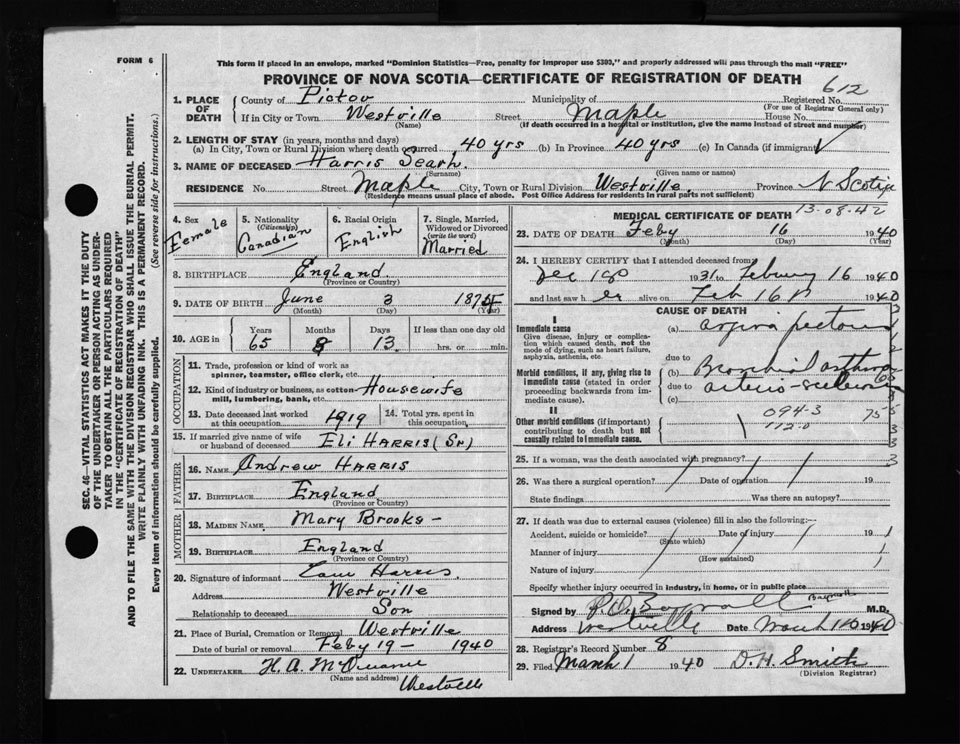 FORM 6
This form if placed in an envelope, marked "Dominion Statistics—Free, penalty for improper use $300," and properly addressed will pass through the mail "FREE"
PROVINCE OF NOVA SCOTIA—CERTIFICATE OF REGISTRATION OF DEATH
612
1. PLACE OF DEATH
County of Pictou Municipality of Registered No.
(For use of Registrar General only)
If in City or Town Westville Street Maple House No.
(Name) (If death occurred in a hospital or institution, give the name instead of street and number)
2. LENGTH OF STAY (in years, months and days)
(a) In City, Town or Rural Division where death occurred 40 yrs (b) In Province 40 yrs (c) In Canada (if immigrant)
3. NAME OF DECEASED Harris
(Surname) (Given name or names)
RESIDENCE No. Street Maple City, Town or Rural Division Westville. Province N Scotia
(Residence means usual place of abode. Post Office Address for residents in rural parts not sufficient)
4. Sex Female
5. Nationality (Citizenship) Canadian
6. Racial Origin English
7. Single, Married, Widowed or Divorced (write the word) Married
8. BIRTHPLACE England
(Province or Country)
9. DATE OF BIRTH June 3 187
(Month) (Day) (Year)
10. AGE in Years Months Days If less than one day old
65 8 13 hrs. or min.
OCCUPATION
11. Trade, profession or kind of work as spinner, teamster, office clerk, etc.
12. Kind of industry or business, as cotton mill, lumbering, bank, etc. Housewife
13. Date deceased last worked at this occupation 1919
14. Total yrs. spent in this occupation
15. If married give name of wife or husband of deceased Eli HARRIS (Sr)
FATHER
16. NAME Andrew HARRIS
17. BIRTHPLACE England
(Province or Country)
MOTHER
18. MAIDEN NAME Mary Brooks -
19. BIRTHPLACE England
(Province or Country)
20. Signature of informant Harris.
Address Westville
Relationship to deceased Son
21. Place of Burial, Cremation or Removal Westville
Date of burial or removal Feby 19 - 1940
22. UNDERTAKER H. A.
(Name and address)
Westville
MEDICAL CERTIFICATE OF DEATH
13-08-42
23. DATE OF DEATH Feby 16 1940
(Month) (Day) (Year)
24. I HEREBY CERTIFY that I attended deceased from
Dec 1931 to February 16 1940
and last saw h er alive on Feb 16 1940
CAUSE OF DEATH
I
Immediate cause
Give disease, injury or complication which caused death, not the mode of dying, such as heart failure, asphyxia, asthenia, etc.
(a) angina pectoris
due to
Morbid conditions, if any, giving rise to immediate cause (stated in order proceeding backwards from immediate cause).
(b) Bronchial asthma
due to arterio-sclerosis
(c)
II
Other morbid conditions (if important) contributing to death but not causally related to immediate cause.
094-3
112-0
25. If a woman, was the death associated with pregnancy?
26. Was there a surgical operation? Date of operation 19
State findings Was there an autopsy?
27. If death was due to external causes (violence) fill in also the following:—
Accident, suicide or homicide? Date of injury 19
(State which)
Manner of injury
(How sustained)
Nature of injury
Specify whether injury occurred in industry, in home, or in public place
Signed by M.D.
Address Westville Date March 1940
28. Registrar's Record Number 8
29. Filed March 1 1940 D. H. Smith
(Division Registrar)
SEC. 46—VITAL STATISTICS ACT MAKES IT THE DUTY
OF THE UNDERTAKER OR PERSON ACTING AS UNDER-
TAKER TO OBTAIN ALL THE PARTICULARS REQUIRED
IN THE "CERTIFICATE OF REGISTRATION OF DEATH"
AND TO FILE THE SAME WITH THE DIVISION REGISTRAR WHO SHALL ISSUE THE BURIAL PERMIT.
WRITE PLAINLY WITH UNFADING INK. THIS IS A PERMANENT RECORD.
Every item of information should be carefully supplied. (See reverse side for instructions.)